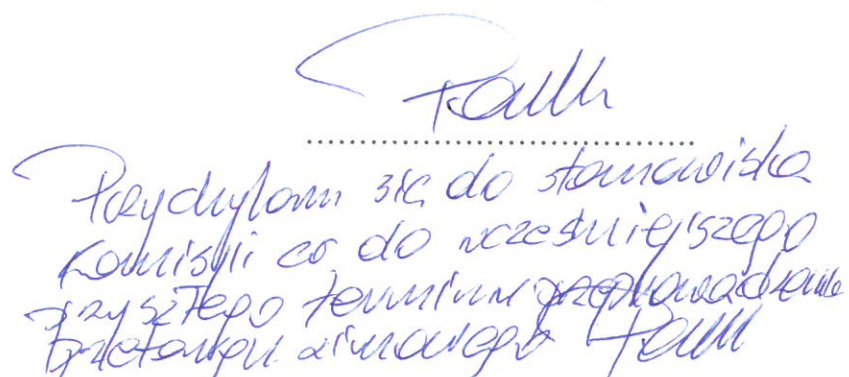 Przychylam się do stanowiska
Komisji co do wcześniejszego
przyszłego terminu przeprowadzenia
przetargu zimowego